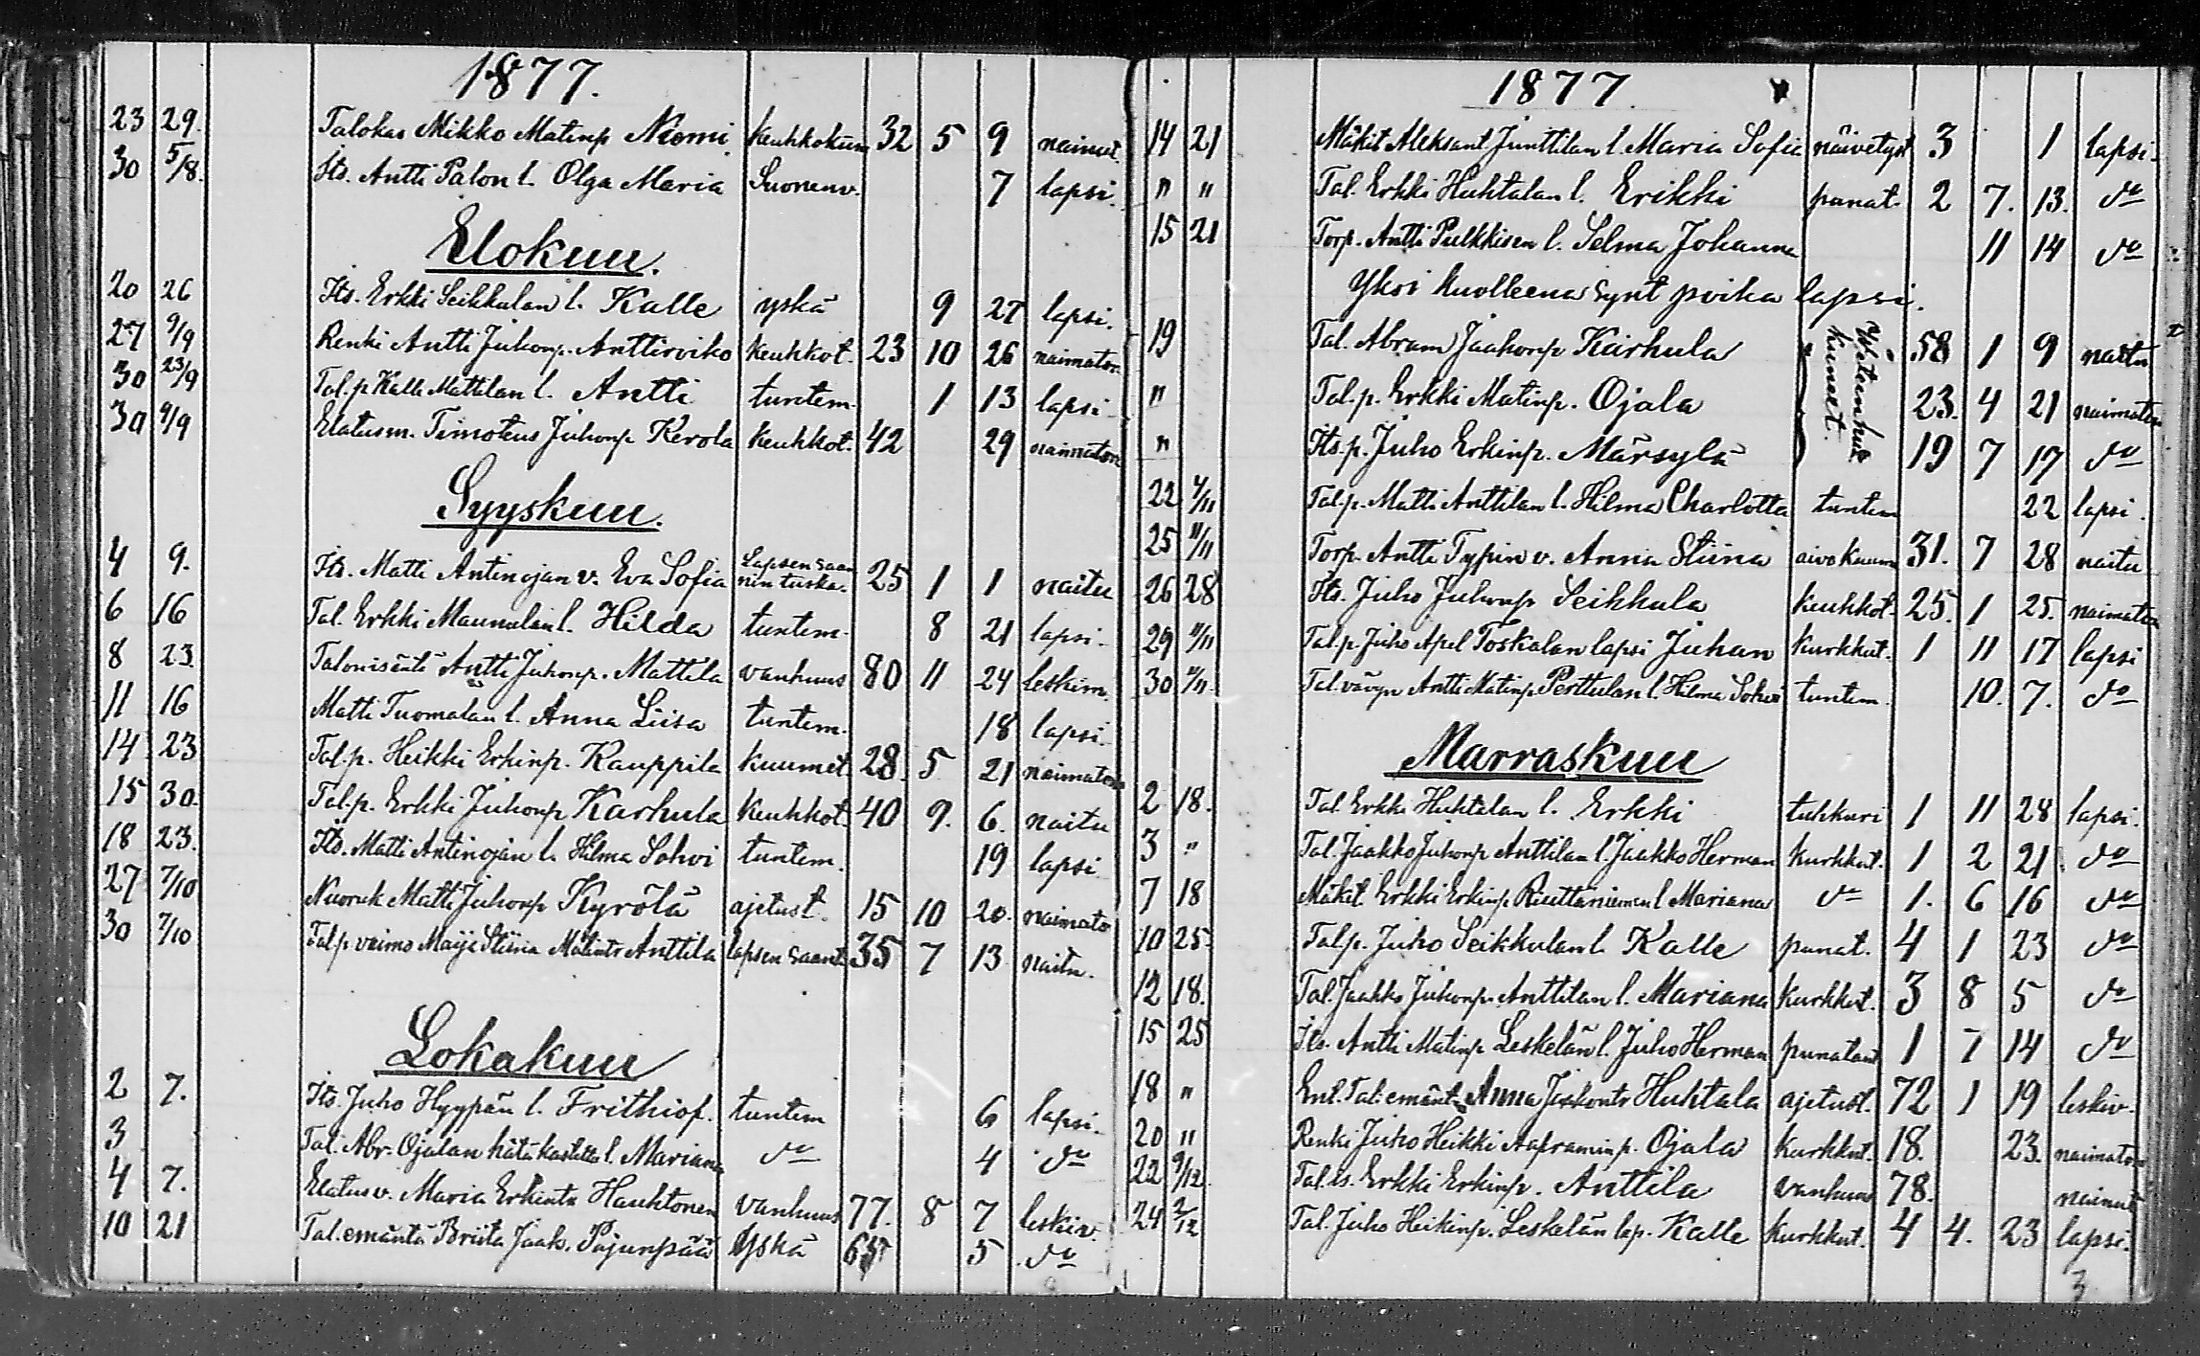 1877.
23 29. Talokas Mikko Matinp Niemi Keuhkokum 32 5 9 nainut
30 5/8. Its. Antti Palon l. Olga Maria Suonenv. 7 lapsi.
Elokuu.
20 26 Its. Erkki Seikkulan l. Kalle yskä 9 27 lapsi.
27 9/9 Renki Antti Juhonp. Anttiroiko Keuhkot. 23 10 26 naimaton
30 23/9 Tal.p Kalle Mattilan l. Antti tuntem. 1 13 lapsi
30 9/9 Elatusm. Timoteus Juhonp Kerola Keuhkot. 42 29 naimaton
Syyskuu.
4 9. Its. Matti Antinojan v. Eva Sofia Lapsen saannin tuska. 25 1 1 naitu
6 16 Tal. Erkki Maunulan l. Hilda tuntem. 8 21 lapsi.
8 23 Talonisäntä Antti Juhonp. Mattila vanhuus 80 11 24 leskim.
11 16 Matti Tuomalan l. Anna Liisa tuntem. 18 lapsi.
14 23 Tal.p. Heikki Erkinp. Kauppila Kuumet. 28. 5 21 naimaton
15 30. Tal.p. Erkki Juhonp Karhula Keuhkot. 40 9. 6. naitu
18 23. Its. Matti Antinojan l. Hilma Sohvi tuntem. 19 lapsi
27 7/10 Nuoruk Matti Juhonp Kyrölä ajetust. 15 10 20. naimato
30 7/10 Talp vaimo Maija Stiina Matintr Anttila lapsen saant. 35 7 13 naitu.
Lokakuu
2 7. Its. Juho Hyypän l. Frithiof. tuntem 6 lapsi.
3 Tal. Abr. Ojalan hätä kastettu l. Mariana do 4 do
4 7. Elatusv. Maria Erkintr Hauhtonen vanhuus 77. 8 7 leskiv.
10 21 Tal. emäntä Briita Jaak. Pajunpää Yskä 65 5 do
1877.
14 21 Mäkit Aleksant Junttilan l. Maria Sofia näivetyst 3 1 lapsi.
" " Tal. Erkki Huhtalan l. Erikki punat. 2 7. 13. do
15 21 Torp. Antti Pulkkisen l. Selma Johanna 11 14 do
Yksi kuolleena synt poika lapsi.
19 Tal. Abram Jaakonp Karhula 58 1 9 naitu
" Tal.p. Erkki Matinp. Ojala 23. 4 21 naimaton
" Its.p. Juho Erkinp. Märsylä 19 7 17 do
22 4/11 Tal.p. Matti Anttilan l. Hilma Charlotta tuntem 22 lapsi.
25 11/11 Torp. Antti Typin v. Anna Stiina aivokuum 31. 7 28 naitu
26 28 Its. Juho Juhonp Seikkula Keuhkot. 25. 1 25. naimaton
29 11/11 Tal.p. Juho Apel Toskalan lapsi Juhan Kurkkut. 1 11 17 lapsi
30 11/11 Tal. vävyn Antti Matinp Perttulan l. Hilma Sohvi tuntem. 10. 7. do
Marraskuu
2 18. Tal. Erkki Huhtalan l. Erkki tuhkuri 1 11 28 lapsi.
3 " Tal. Jaakko Juhonp Anttilan l. Jaakko Herman Kurkkut. 1 2 21 do
7 18 Mäkit Erkki Erkinp Riuttaniemen l Mariana do 1. 6 16 do
10 25. Tal.p. Juho Seikkulan l. Kalle punat. 4 1 23 do
12 18. Tal. Jaakko Juhonp. Anttilan l. Mariana Kurkkut. 3 8 5 do
15 25 Its. Antti Matinp Leskelän l. Juho Herman punataut 1 7 14 do
18 " Ent. Tal: emänt. Anna Jaakontr Huhtala ajetust. 72 1 19 leskiv.
20 " Renki Juho Heikki Aapraminp. Ojala Kurkkut. 18. 23. naimaton
22 9/12 Tal. is. Erkki Erkinp. Anttila vanhuus 78. nainut
24 2/12 Tal. Juho Heikinp. Leskelän lap. Kalle Kurkkut. 4 4. 23 lapsi.
3